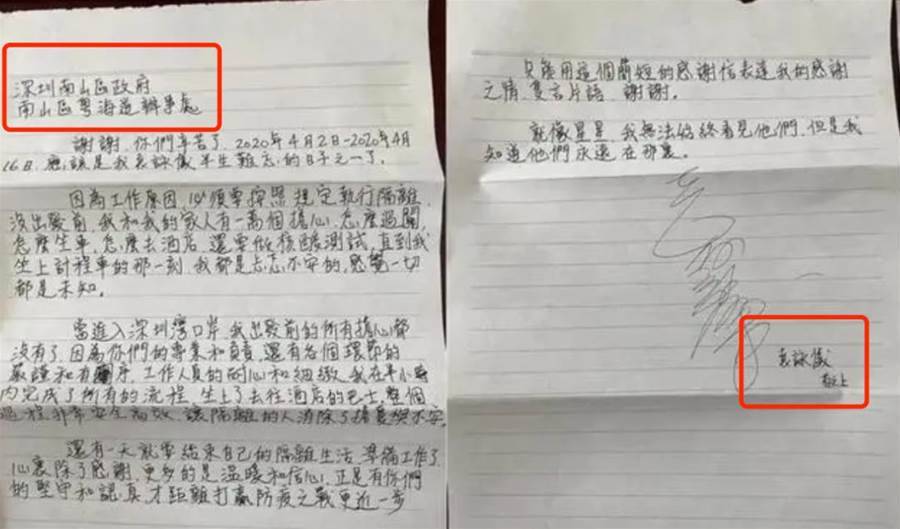 深圳南山區政府
南山區粵海道辦事處
謝謝,你們辛苦了,2020年4月2日-2020年4月
16日,應該是我袁詠儀半生難忘的日子之一了。
因為工作原因,必須要按照規定執行隔離,
沒出發前,我和我的家人有一萬個擔心,怎麼過關,
怎麼坐車,怎麼去酒店,還要做核酸測試,直到我
坐上計程車的那一刻,我都是忐忑不安的,感覺一切
都是未知。
當進入深圳灣口岸,我出發前的所有擔心都
沒有了,因為你們的專業和負責,還有各個環節的
嚴謹和有序,工作人員的耐心和細緻,我在半小時
內完成了所有的流程,坐上了去往酒店的巴士,整個
過程非常安全高效,讓隔離的人消除了擔憂與不安。
還有一天就要結束自己的隔離生活,準備工作了,
心裏除了感謝,更多的是溫暖和信心,正是有你們
的堅守和認真,才距離打贏防疫之戰更近一步
只能用這個簡短的感謝信表達我的感謝
之情,寥言片語,謝謝。
就像星星,我無法始終看見他們,但是我
知道他們永遠在那裏。
袁詠儀
敬上